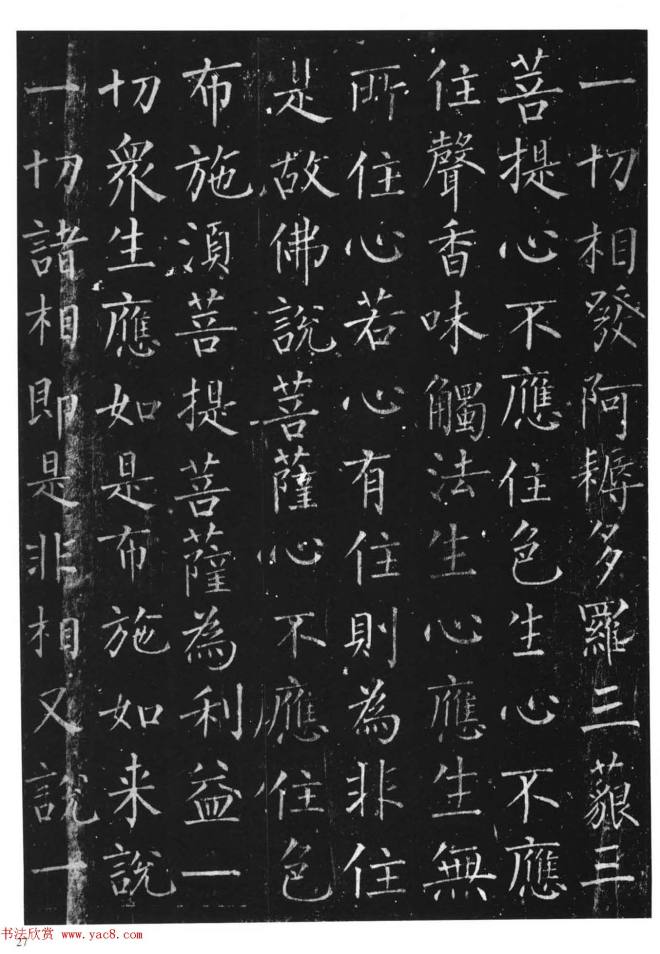 一切相發阿耨多羅三藐三
菩提心不應住色生心不應
住聲香味觸法生心應生無
所住心若心有住則為非住
是故佛說菩薩心不應住色
布施湏菩提菩薩為利益一
切衆生應如是布施如来說
一切諸相即是非相又說一
书法欣赏 www.yac8.com
27